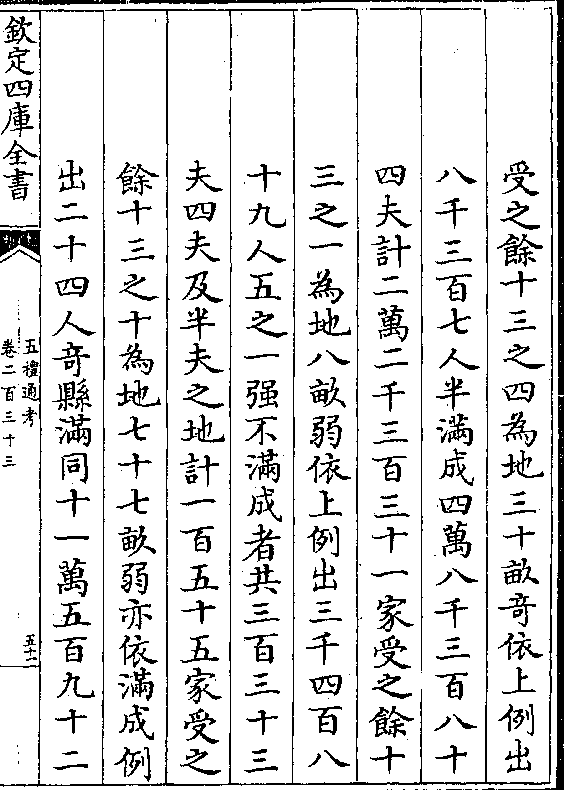 受之餘十三之四為地三十畝竒依上例出
八千三百七人半滿成四萬八千三百八十
四夫計二萬二千三百三十一家受之餘十
三之一為地八畝弱依上例出三千四百八
十九人五之一强不滿成者共三百三十三
夫四夫及半夫之地計一百五十五家受之
餘十三之十為地七十七畝弱亦依滿成例
出二十四人竒縣滿同十一萬五百九十二
欽定四庫全書
五禮通考
卷二百三十三
五十二